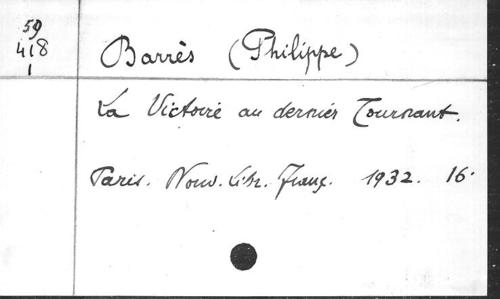 59
418
1
Barrès (Philippe)
La Victoire au dernier Tournant.
Paris. Nouv. Libr. Franç. 1932. 16°